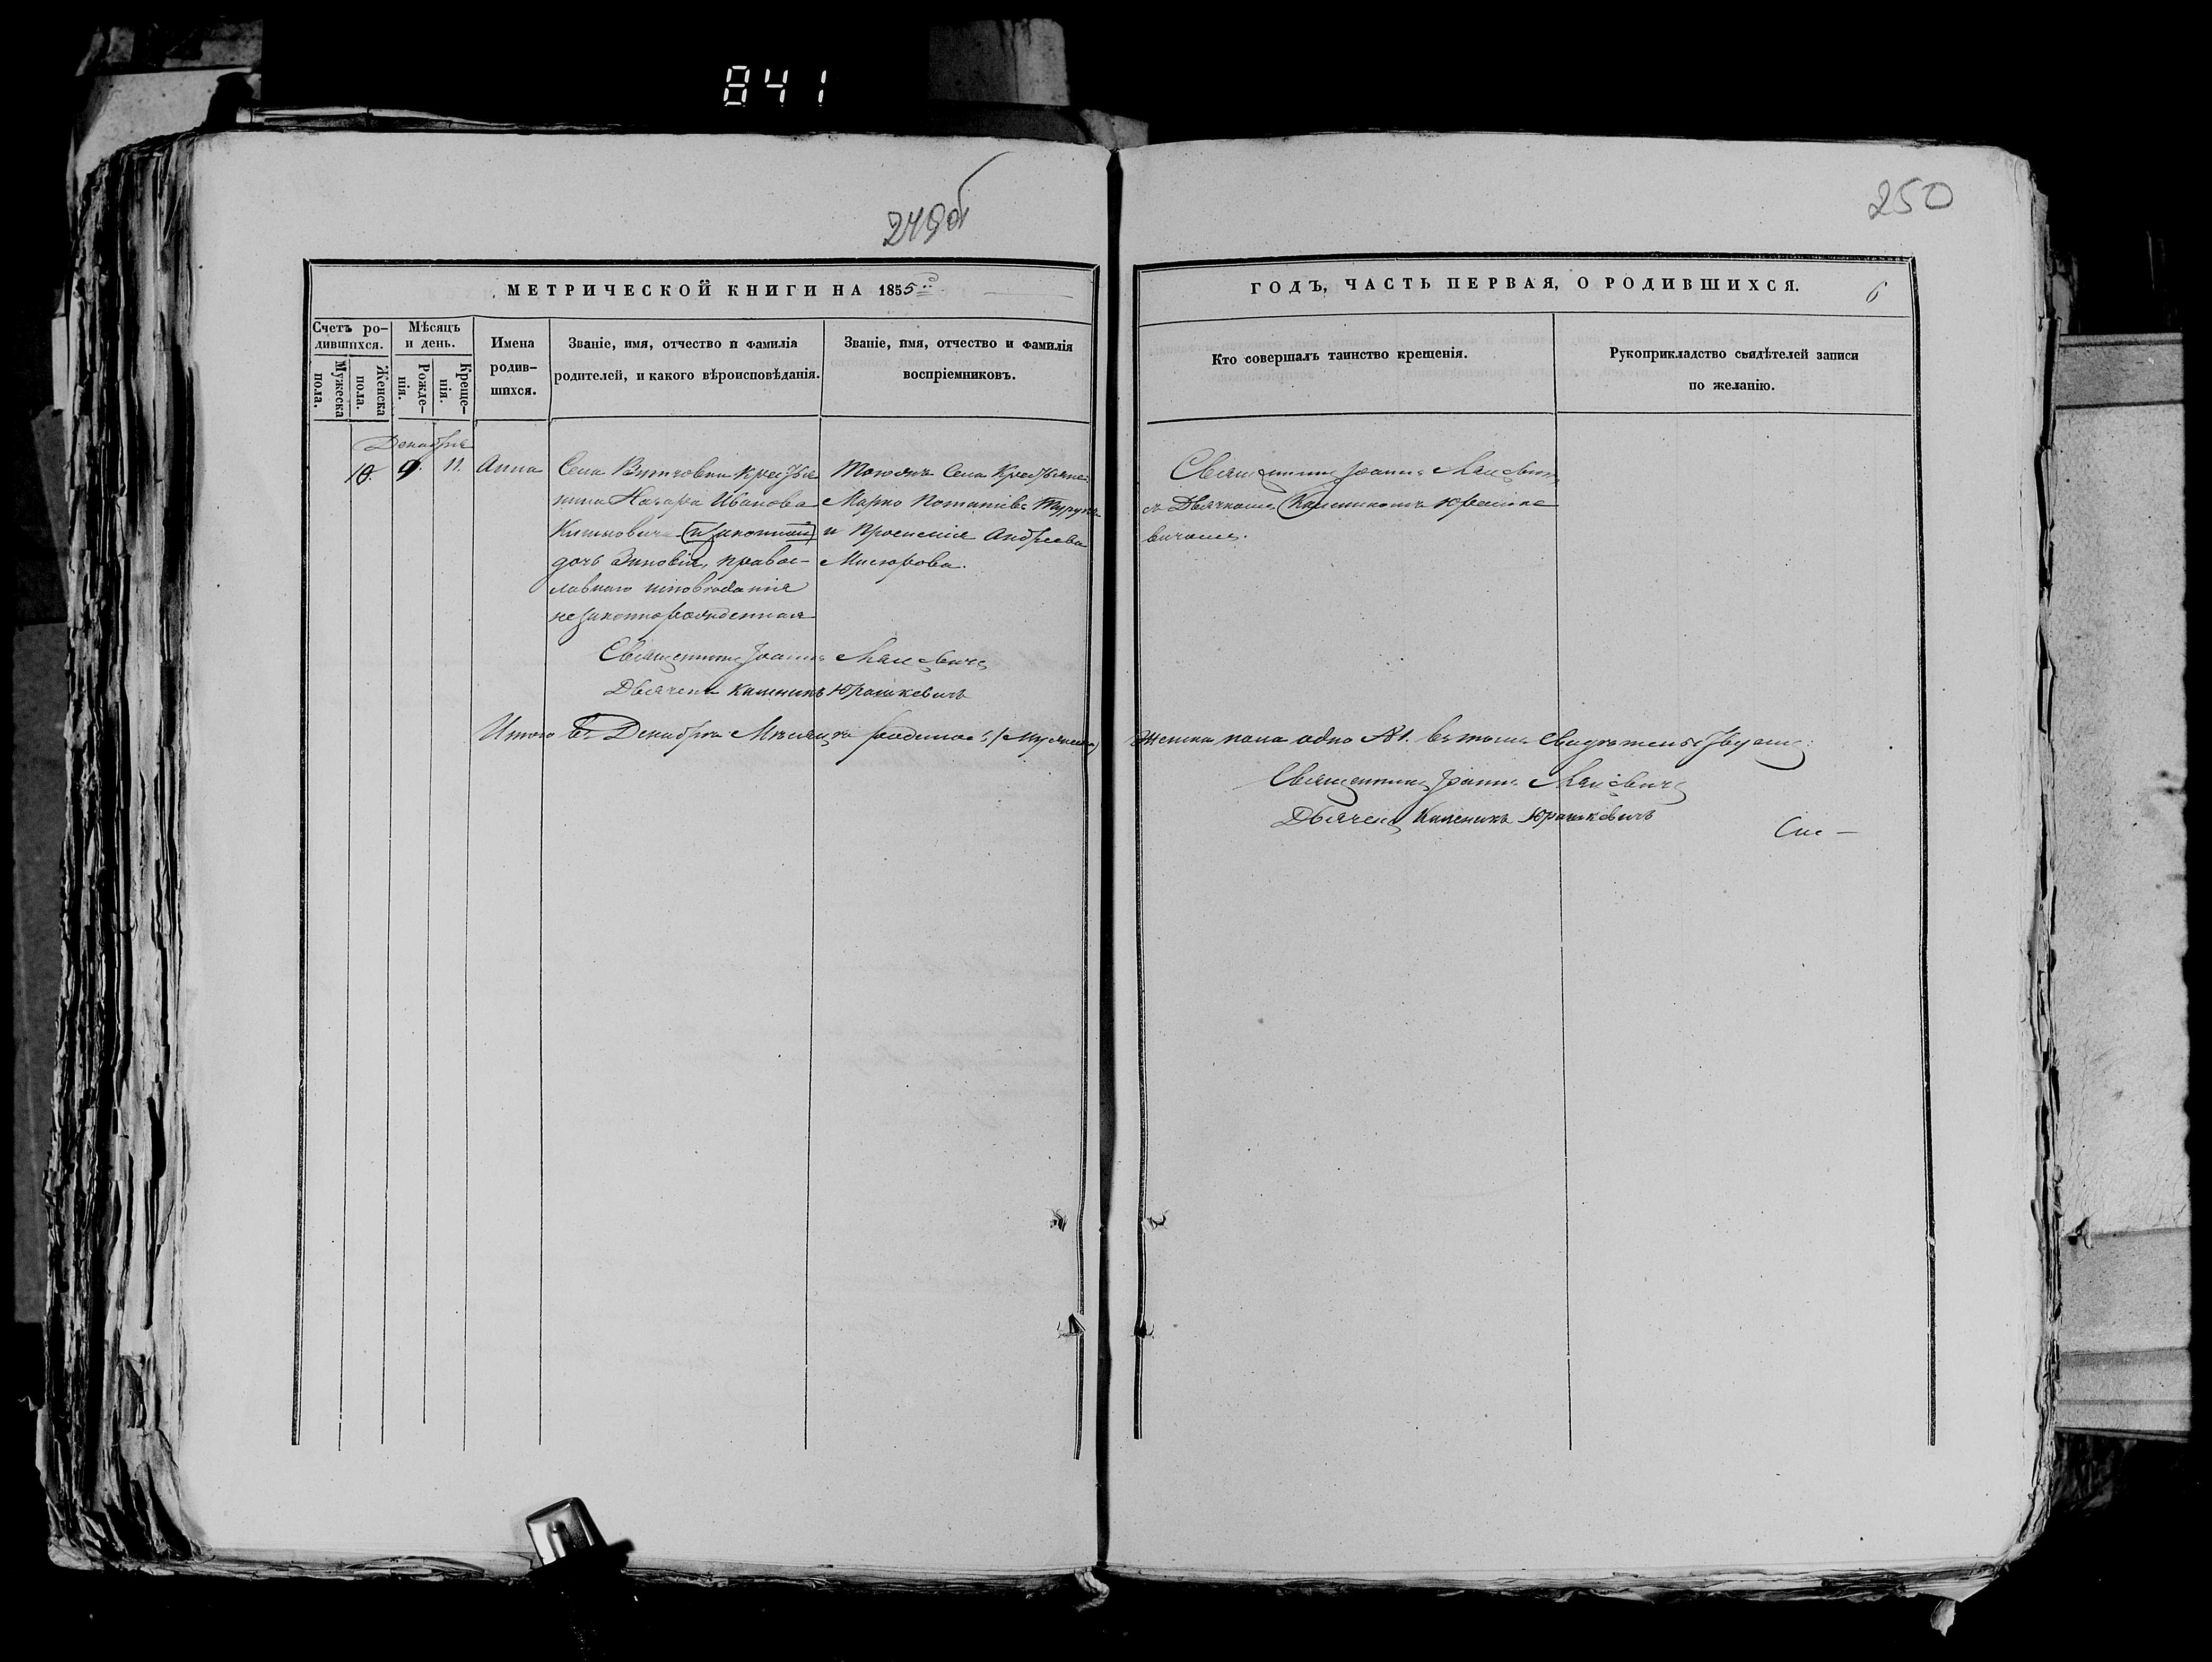 841
249об
250
МЕТРИЧЕСКОЙ КНИГИ НА 1855
ГОДЪ, ЧАСТЬ ПЕРВАЯ, О РОДИВШИХСЯ.
6
Счетъ ро-
дившихся.
Мужеска
пола.
Женска
пола.
Мѣсяцъ
и день.
Рожде-
нія.
Креще-
нія.
Имена
родив-
шихся.
Званіе, имя, отчество и фамилія
родителей, и какого вѣроисповѣданія.
Званіе, имя, отчество и фамилія
воспріемниковъ.
Кто совершалъ таинство крещенія.
Рукоприкладство свидѣтелей записи
по желанію.
Декабрь
10. 9. 11. Анна
Села крестья
нина Назара Иванова
дочь Зиновія, правос-
лавнаго исповѣданія
незаконнорожденная
Тогожъ Села Крестьяне
Марко
и Андреева
Священникъ Іоаннъ
съ Дьячкомъ
вичемъ.
Священникъ Іоаннъ
Дьячекъ Юрашкевичъ
Итого въ Декабрѣ Мѣсяцѣ родилось
Женска пола одно №1. въ томъ свидѣтельствуемъ:
Священникъ Іоаннъ
Дьячекъ Юрашкевичъ